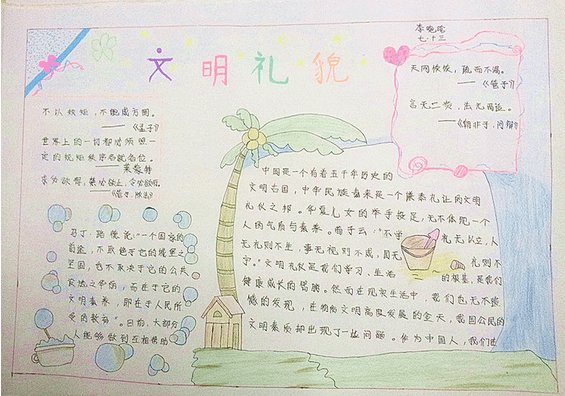 李晓晗
七·十三
文明礼貌
天网恢恢，疏而不漏。
——《管子》
言无二贵，法无两适。
——《韩非子，问辩》
不以规矩，不能成方圆。
——《孟子》
世界上的一切都必须照一
定的规矩秩序各就各位。
——莱蒙特
中国是一个有着五千年历史的
文明古国，中华民族素来是一个谦恭礼让的文明
礼仪之邦。华夏儿女的举手投足，无不体现一个
人的气质与素养。荀子云："不学礼无以立，人
无礼则不生，事无礼则不成，国无礼则不
宁。"文明礼仪是我们学习、生活的根基，是我们
健康成长的臂膀。然而在现实生活中，我们也无不遗
憾的发现，在物质文明高度发展的今天，我国公民的
文明素质却出现了一些问题。作为中国人，我们
马丁·路德说："一个国家的
前途，不取决于它的城堡之
坚固，也不取决于它的公共
设施之华丽，而在于它的
文明素养，即在于人民所
受的教育"。日前，大部分
人能够做到互相帮助